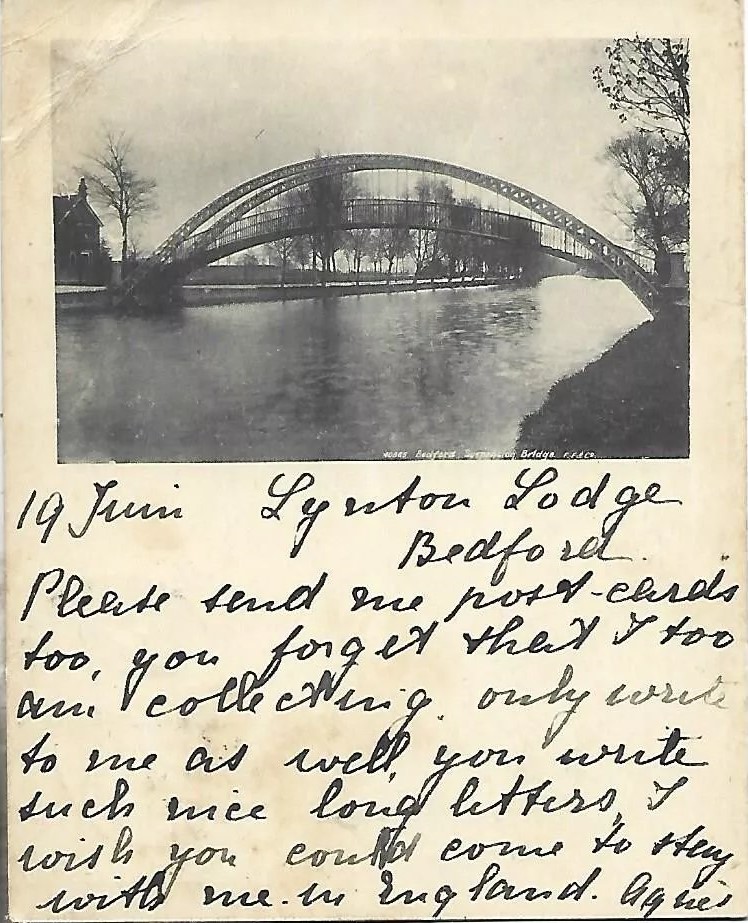 40865 Bedford Suspension Bridge. F.F.& Co.
19 Juin Lynton Lodge
Bedford.
Please send me post-cards
too, you forget that I too
am collecting, only write
to me as well, you write
such nice long letters, I
wish you could come to stay
with me in England. Agnes